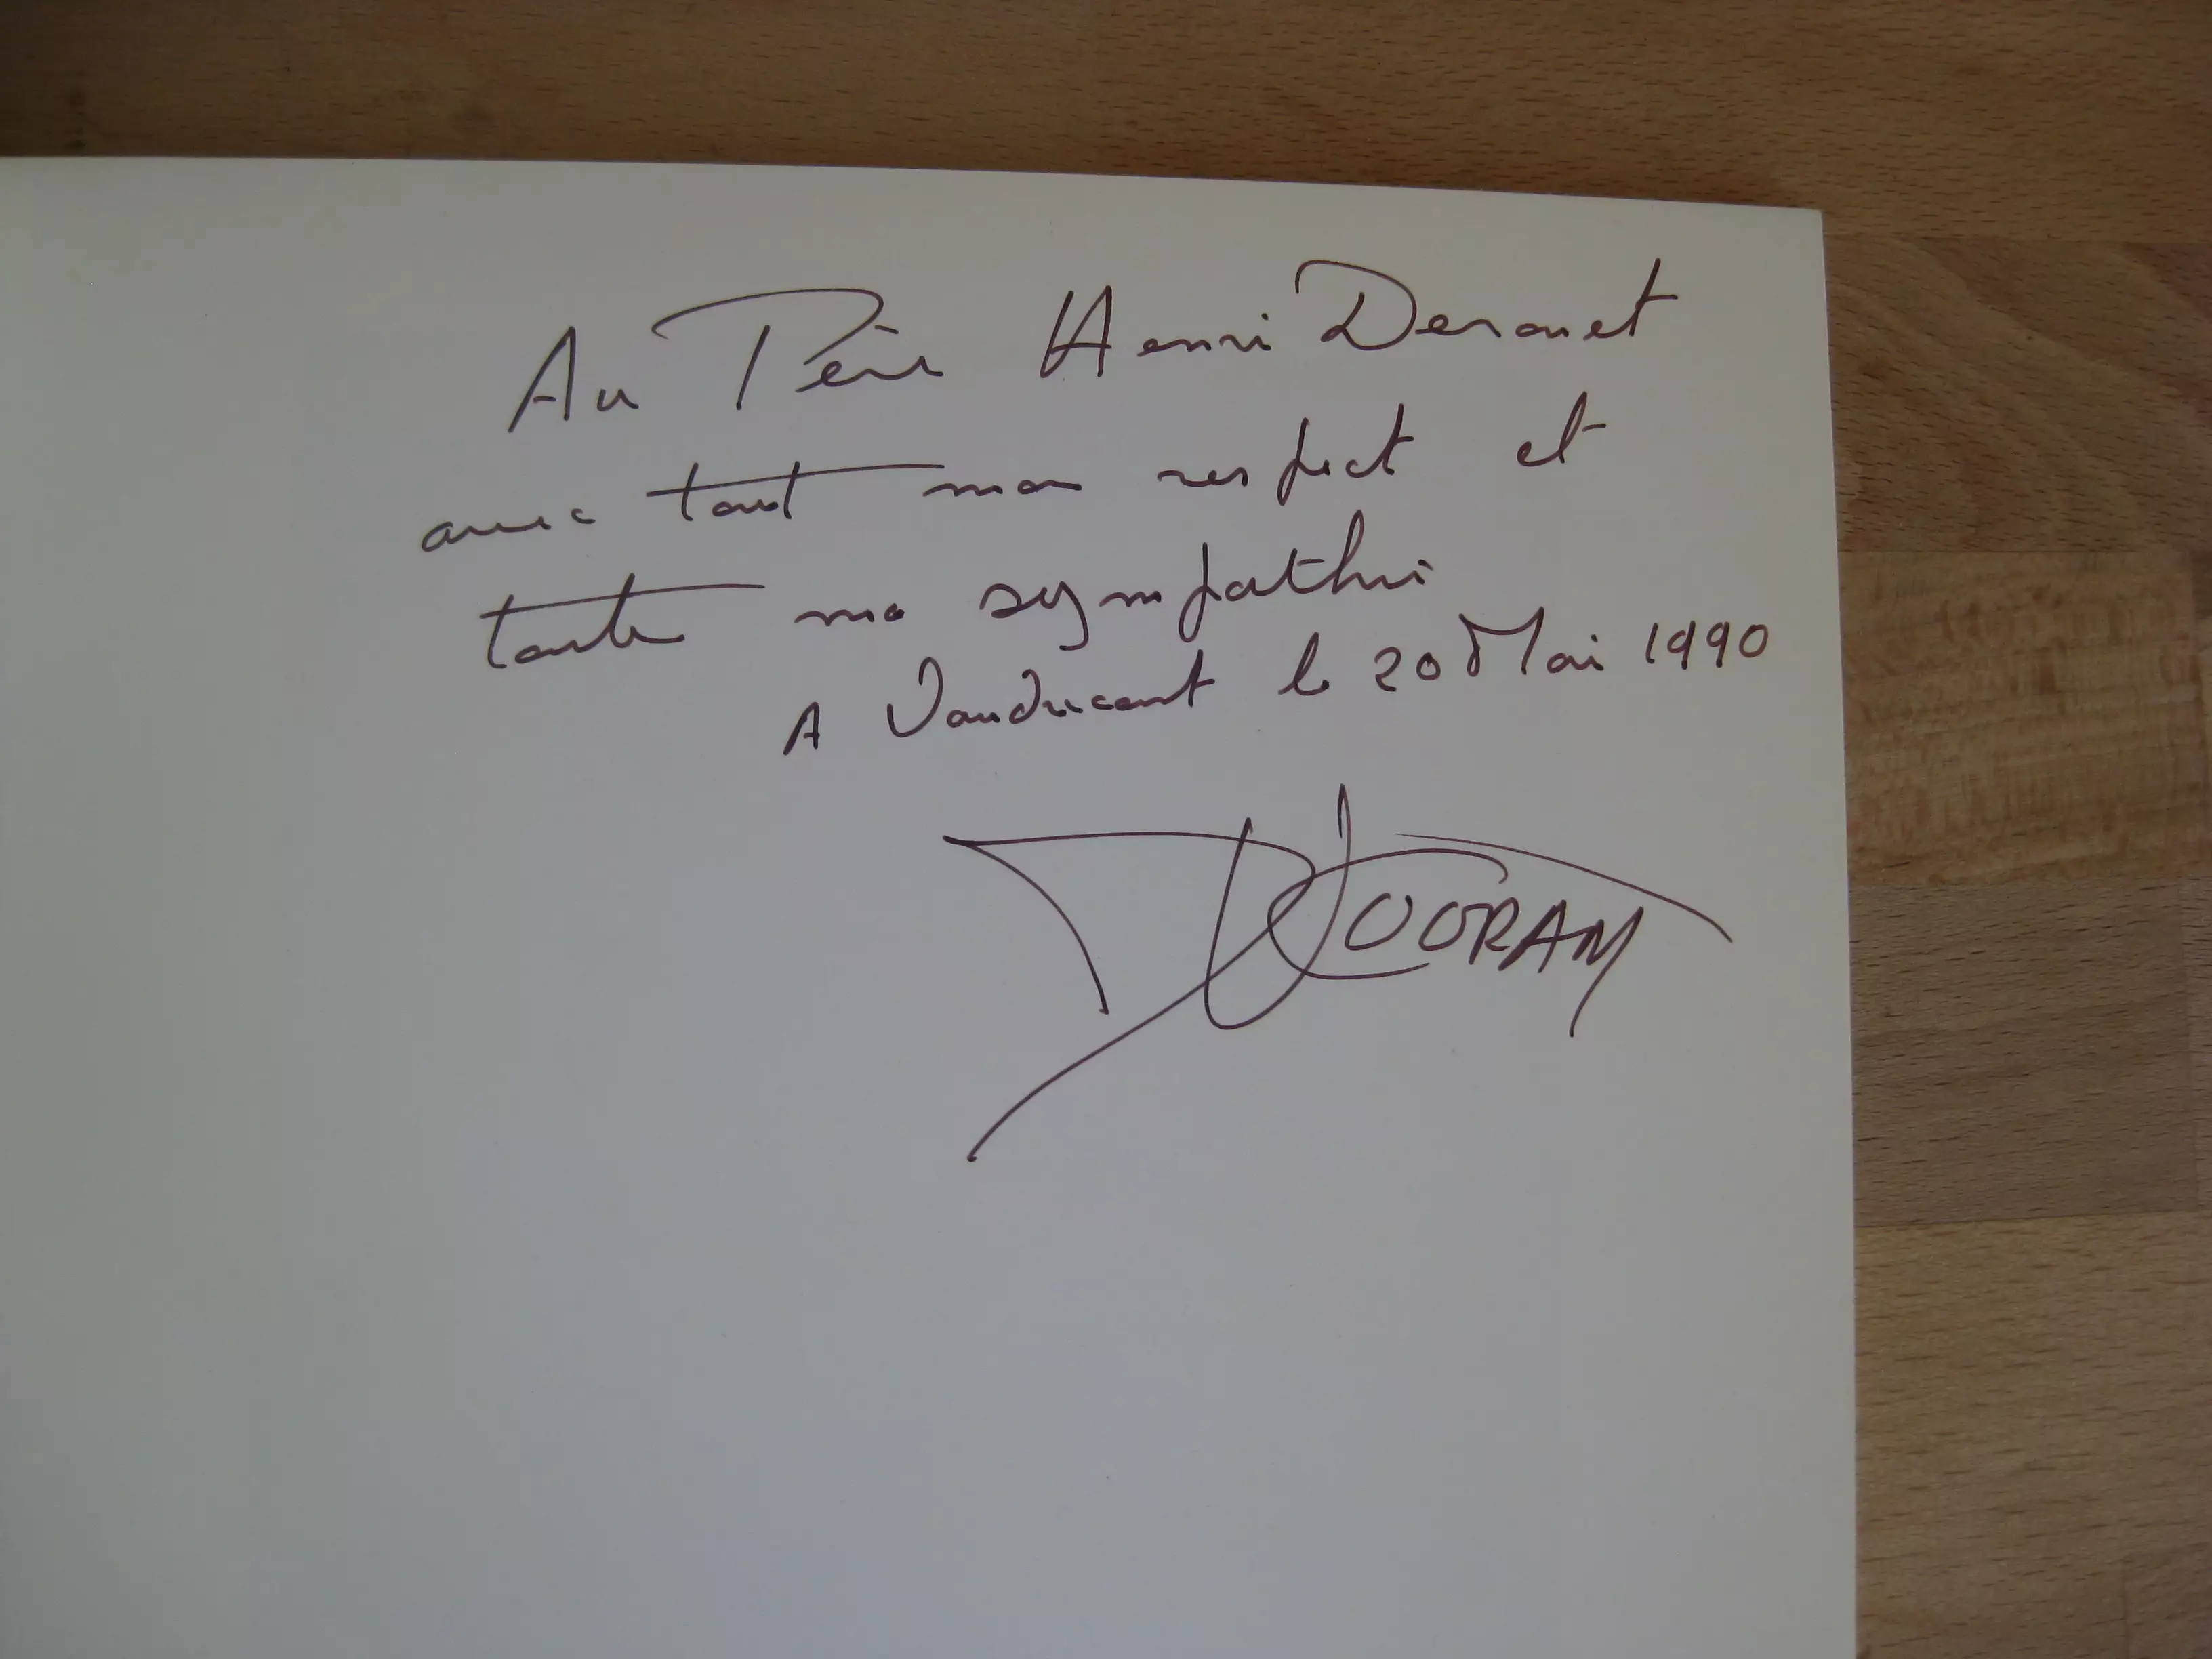 Au Père Henri Derouet
avec tout mon respect et
toute ma sympathie
A Vaudricourt le 20 Mai 1990